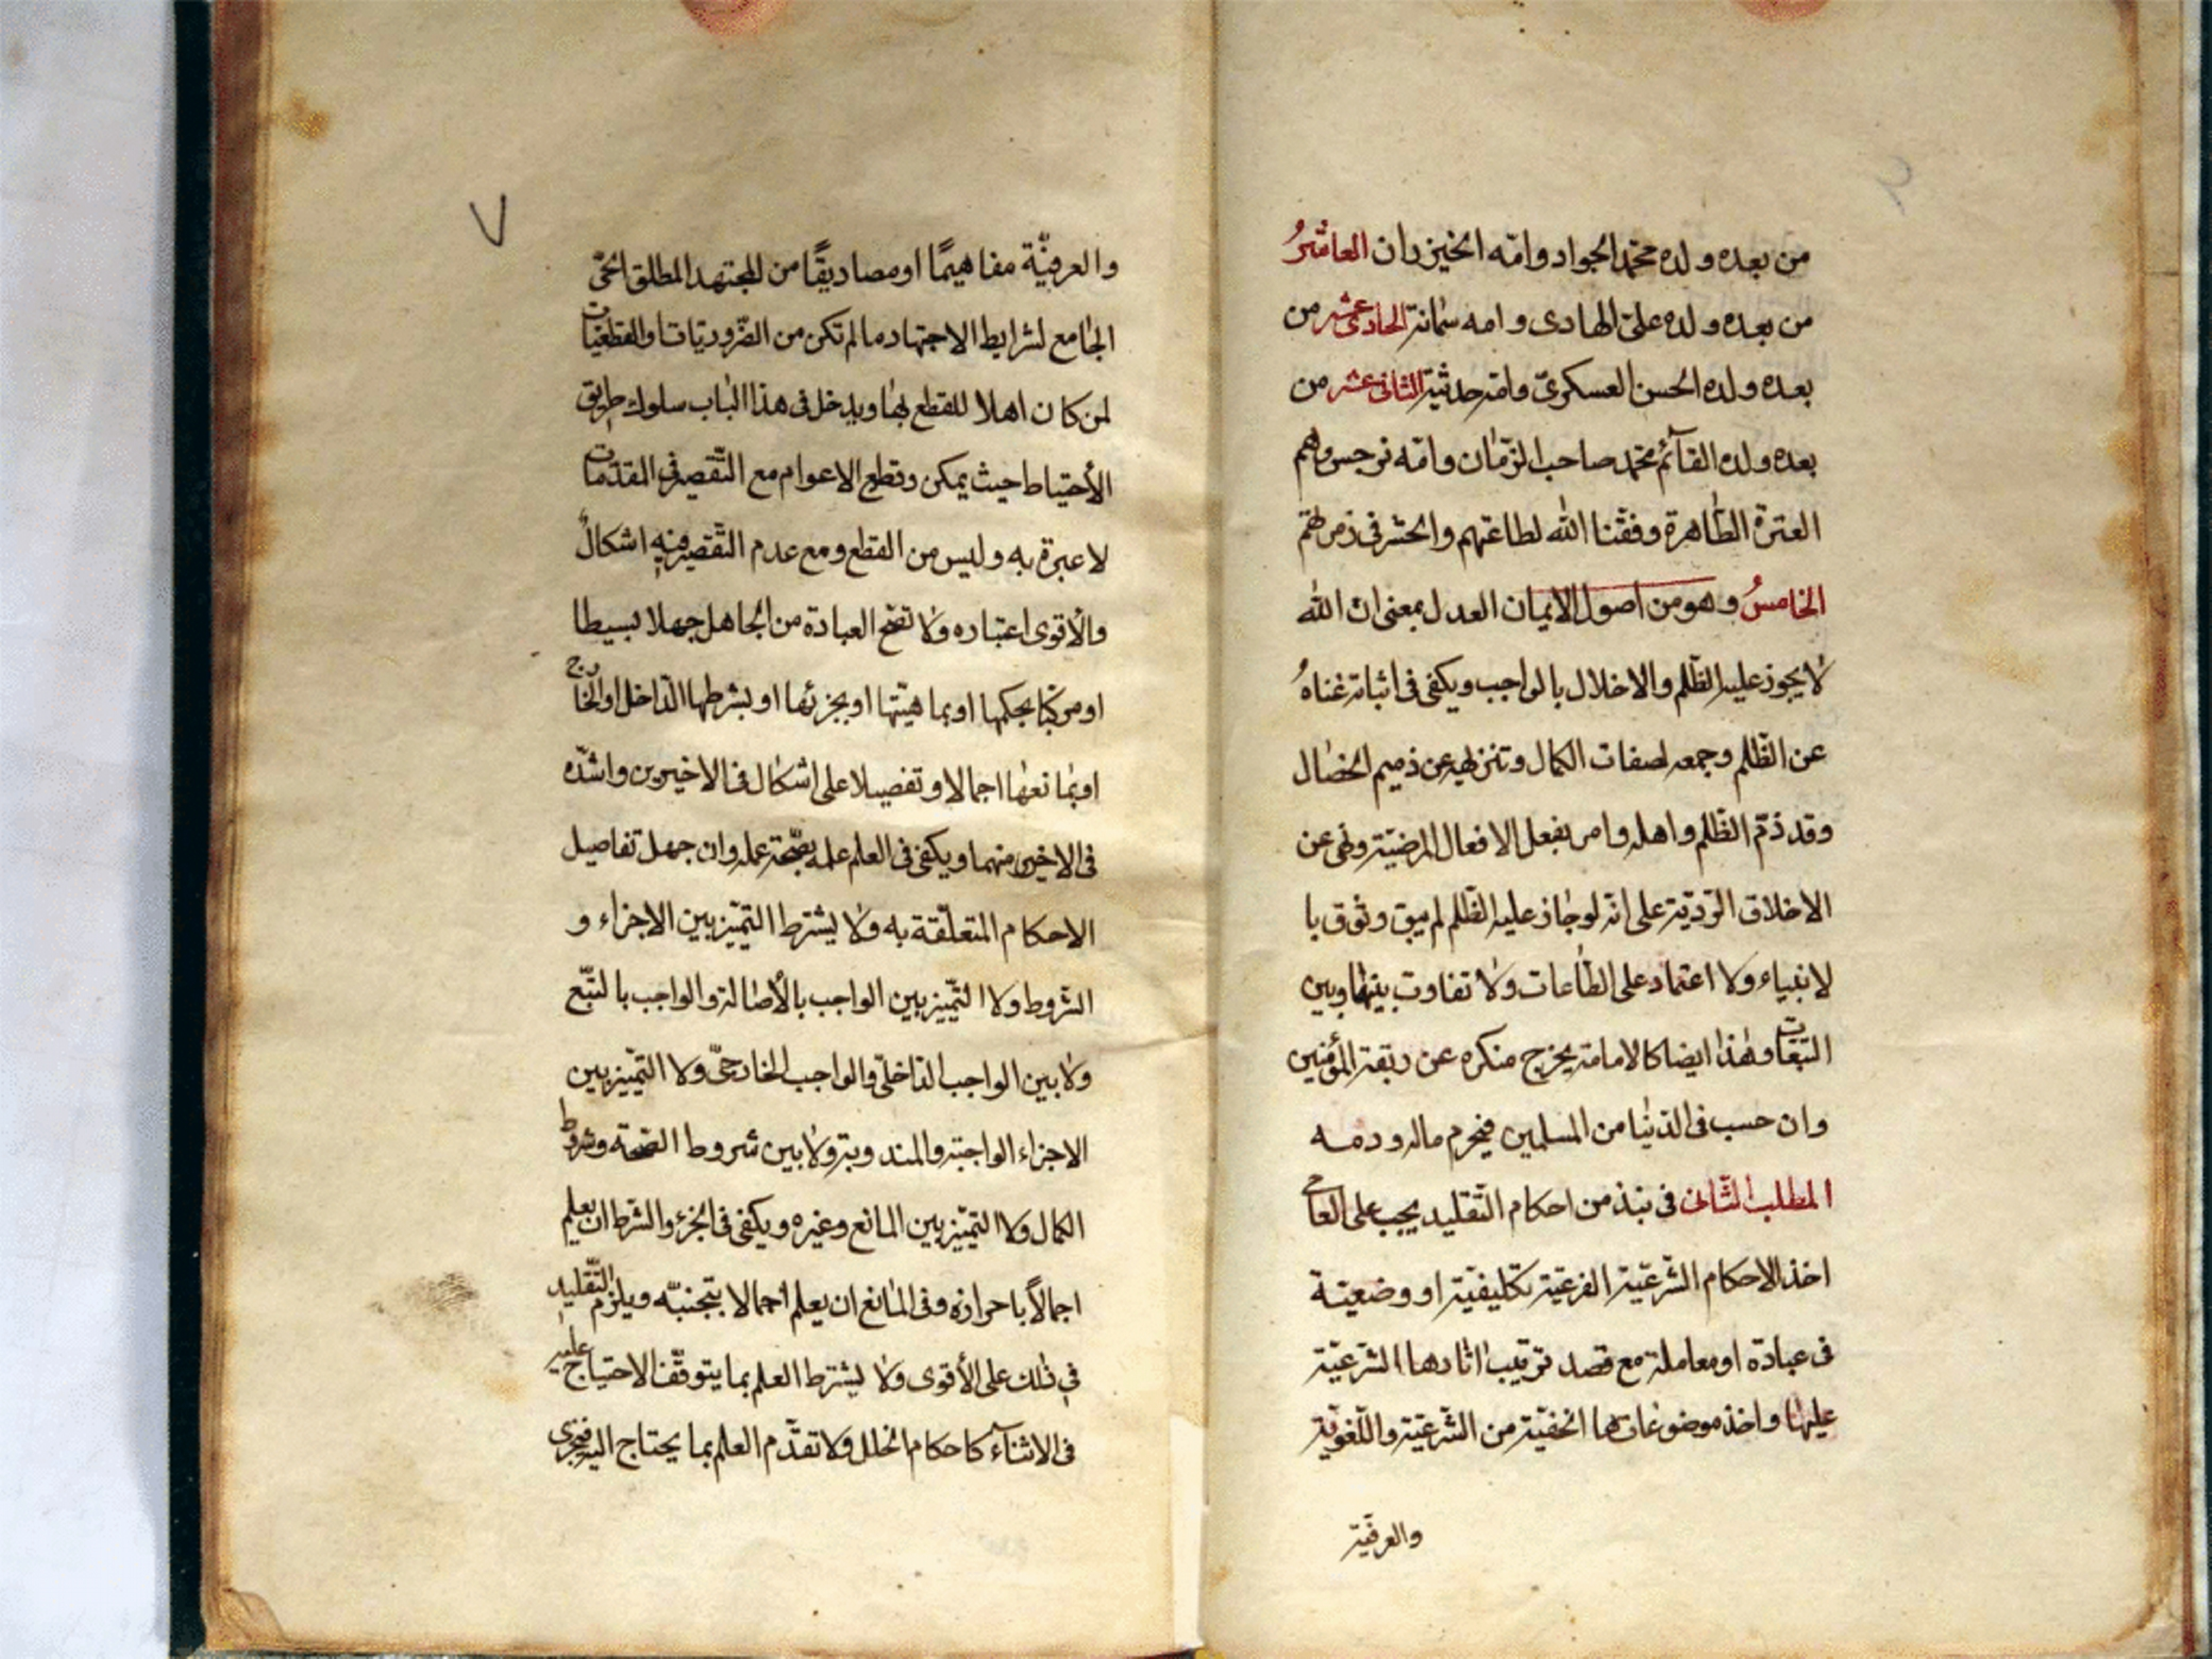 من بعده ولده محمّد الجواد وامّه الخيزران العاشرُ
من بعده ولده علىّ الهادى وامه سمانة الحادى عشر من
بعده ولده الحسن العسكرىّ وامّه حديثة الثانى عشر من
بعده ولده القآئم محمّد صاحب الزّمان وامّه نرجس وهم
العترة الطّاهرة وفقّنا الله لطاعتهم والحشر فى زمرتهم
الخامسُ وهو من اصول الايمان العدل بمعنى ان الله
لا يجوز عليه الظّلم والاخلال بالواجب ويكفى فى اثباته غناهُ
عن الظّلم وجمعه لصفات الكمال وتنزيهه عن ذميم الخصال
وقد ذمّ الظّلم واهله وامر بفعل الافعال المرضيّة ونهى عن
الاخلاق الرّديّة على انّه لو جاز عليه الظّلم لم يبق وثوق با
لانبياء ولا اعتماد على الطّاعات ولا تفاوت بينها وبين
التبعات وهذا ايضا كالامامة يخرج منكره عن ربقة المؤمنين
وان حسب فى الدّنيا من المسلمين فيحرم ماله ودمه
المطلب الثّانى فى نبذ من احكام التّقليد يجب على العامى
اخذ الاحكام الشّرعيّة الفرعيّة تكليفيّة او وضعيّة
فى عبادة او معاملة مع قصد ترتيب اثارها الشّرعيّة
عليها واخذ موضوعاتها الخفيّة من الشّرعيّة واللّغويّة
والعرفيّة
٧
والعرفيّة مفاهيمًا او مصاديقًا من المجتهد المطلق الحىّ
الجامع لشرايط الاجتهاد ما لم تكن من الضّروريّات والقطعيّات
لمن كان اهلا للقطع بها ويدخل فى هذا الباب سلوك طريق
الأحتياط حيث يمكن وقطع الاعوام مع التّقصير فى المقدّمات
لا عبرة به وليس من القطع ومع عدم التّقصير فيه اشكالٌ
والأقوى اعتباره ولا تصّح العبادة من الجاهل جهلا بسيطا
او مركّبا بحكمها او بماهيّتها او بجزئها او بشرطها الدّاخل او الخارج
او بمانعها اجمالا وتفصيلا على اشكال فى الاخيرين واشدّه
فى الاخير منهما ويكفى فى العلم علمه بصّحة عمله وان جهل تفاصيل
الاحكام المتعلّقة به ولا يشترط التميّز بين الاجزاء و
الشّروط ولا التّميّز بين الواجب بالأصالة والواجب بالتبّع
ولا بين الواجب الدّاخلىّ والواجب الخارجىّ ولا التميّز بين
الاجزاء الواجبة والمندوبة ولا بين شروط الصّحة وشروط
الكمال ولا التميّز بين المانع وغيره ويكفى فى الجزء والشّرط ان يعلم
اجمالاً باحرازه وفى المانع ان يعلم اجمالا بتجنبّه ويلزم التّقليد
فى ذلك على الأقوى ولا يشترط العلم بما يتوقّف الاحتياج عليه
فى الاثنآء كاحكام الخلل ولا تقدّم العلم بما يحتاج اليه فيجزى